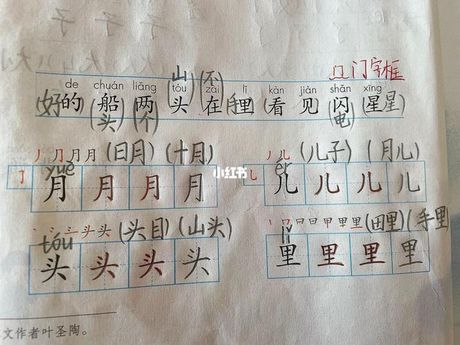 门字框
山 不
de chuán liǎng tóu zài lǐ kàn jiàn shǎn xīng
好的 (船 两 头 在 手里 (看 见 (闪 (星星
头 个 电
丿 月 月 月 (日月) (十月) 丿 儿 (儿子) (月儿)
yuè ér
月 月 月 月 儿 儿 儿 儿
小红书
头 头 (头目) (山头) 日 日 甲 甲 里 里 (田里) (手里
tóu lǐ
头 头 头 头 里 里 里 里
文作者叶圣陶。